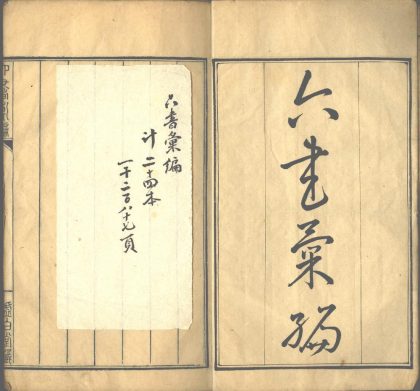 六書彙編
六書彙編
計二十四本
一千二百八十七頁